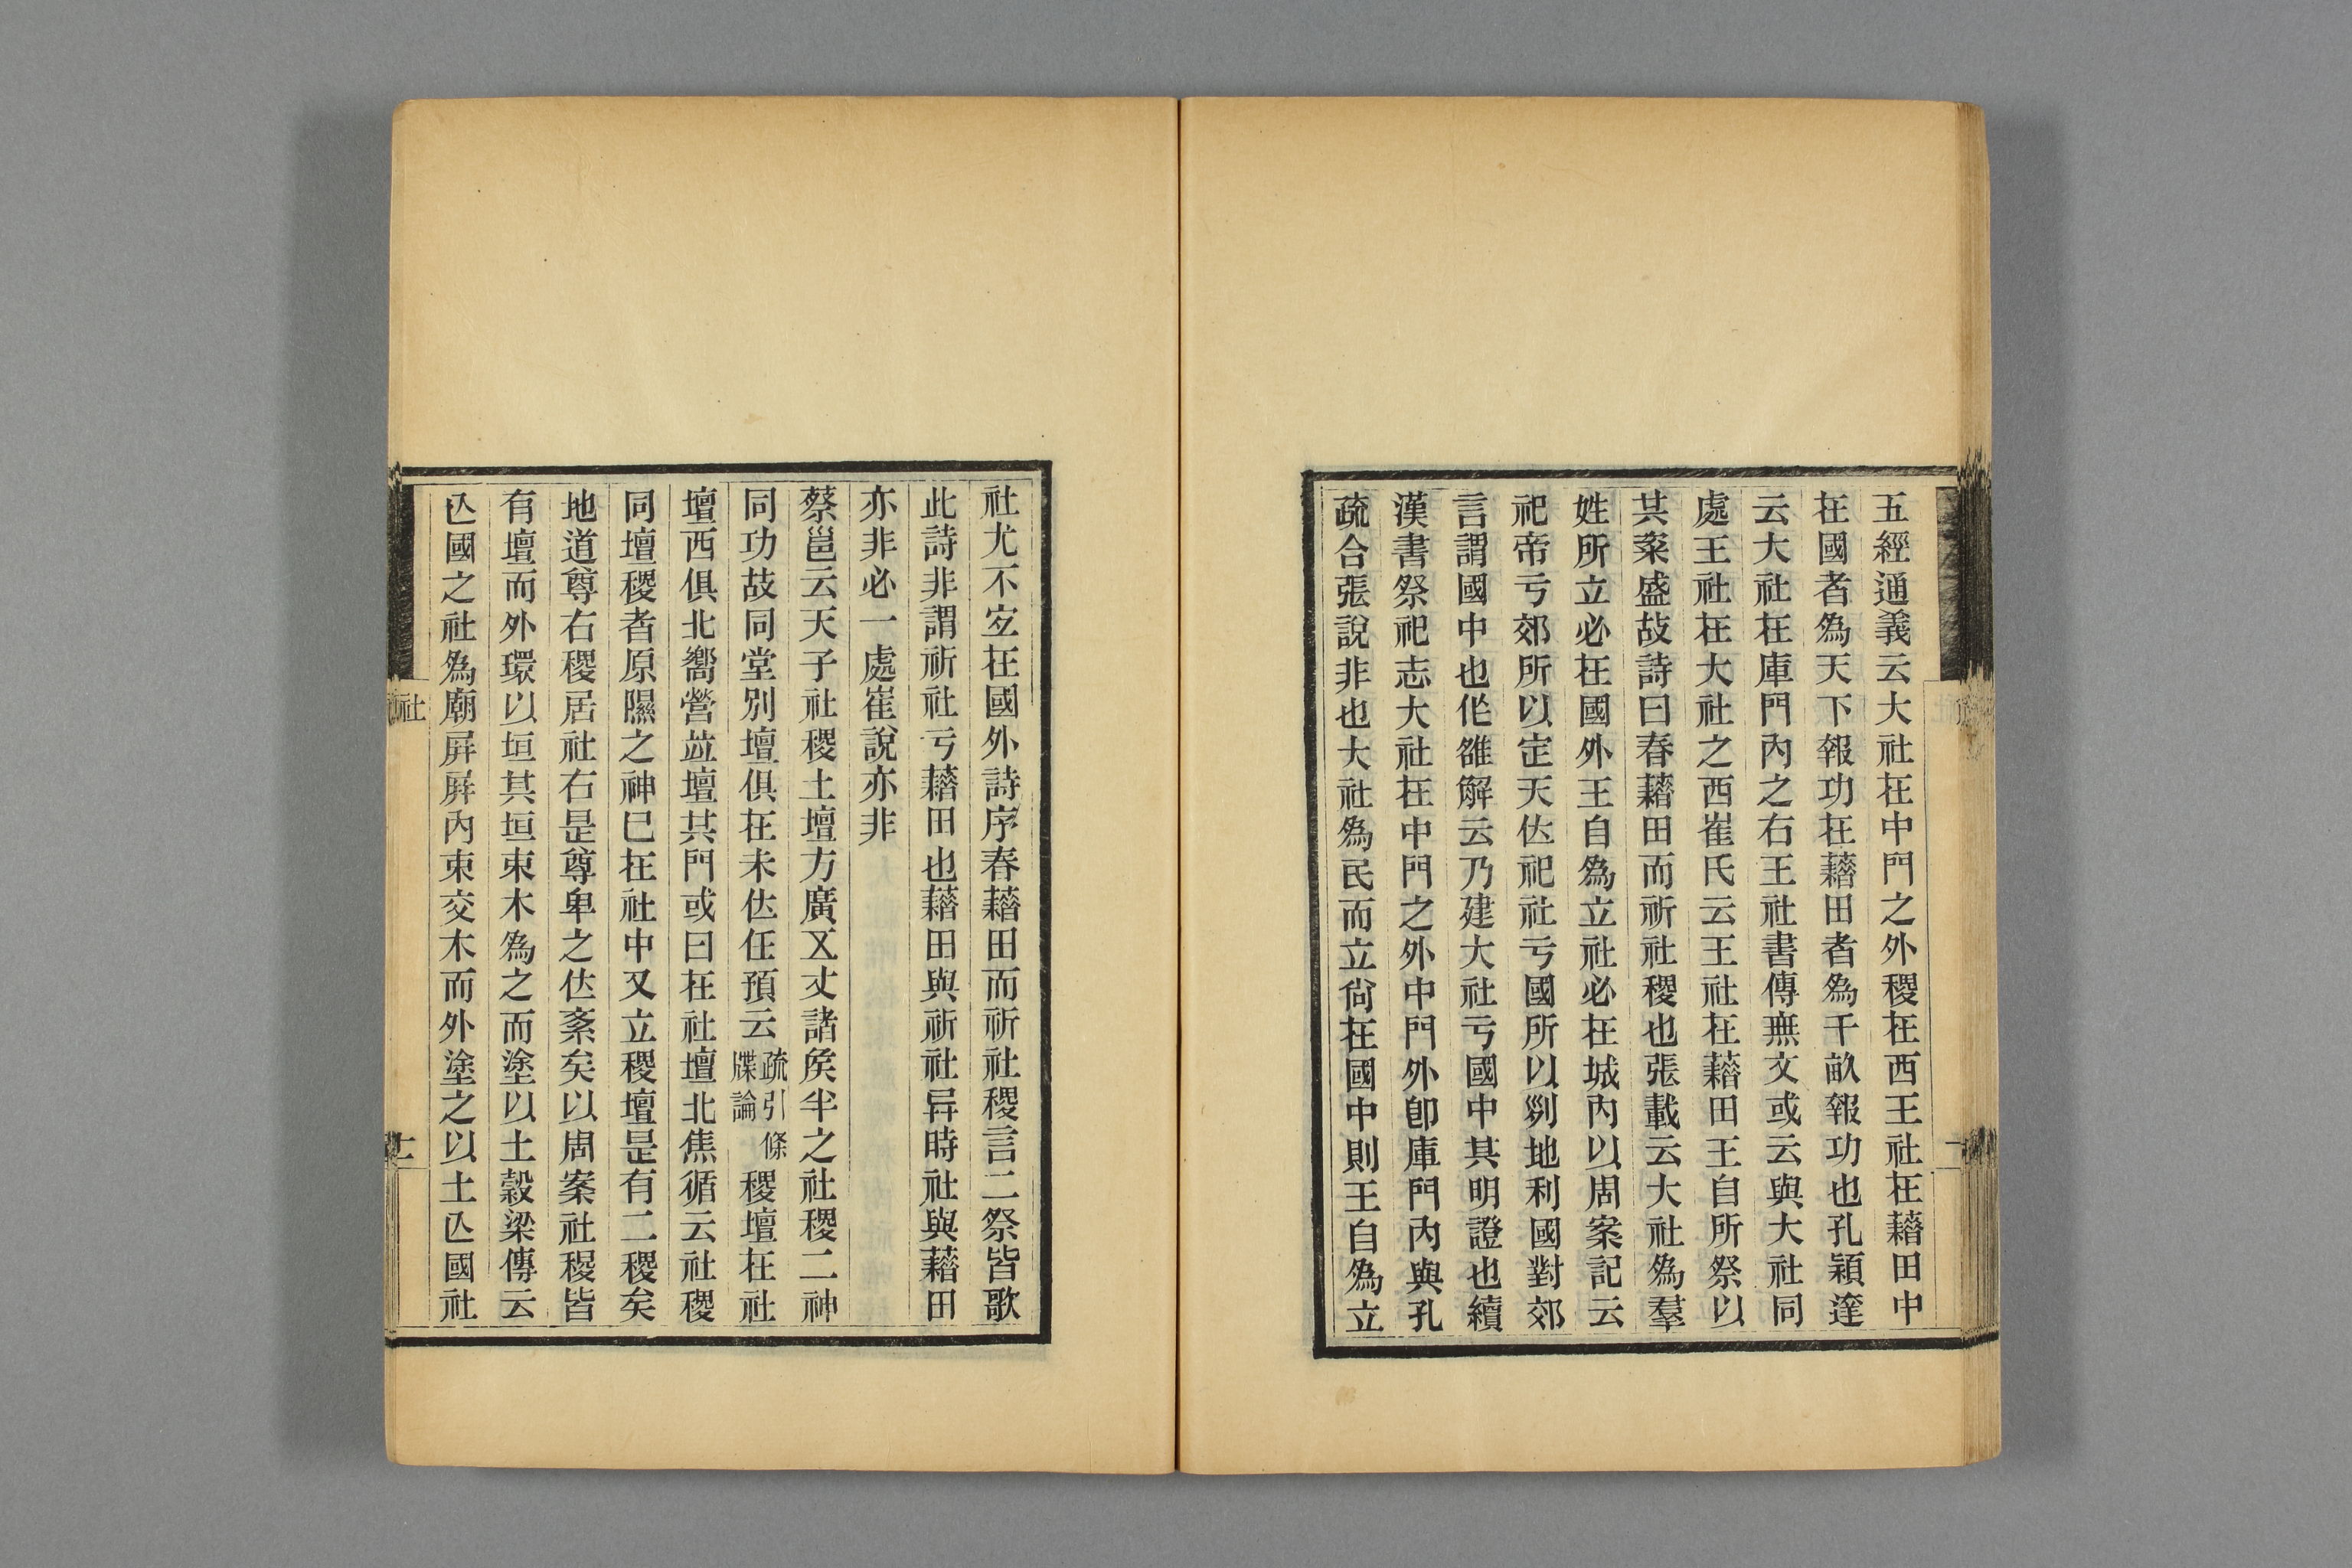 五經通義云大社在中門之外稷在西王社在藉田中
在國者為天下報功在藉田者為千畝報功也孔穎達
云大社在庫門內之右王社書傳無文或云與大社同
處王社在大社之西崔氏云王社在藉田王自所祭以
共粢盛故詩曰春藉田而祈社稷也張載云大社為羣
姓所立必在國外王自為立社必在城內以周案記云
祀帝亏郊所以定天位祀社亏國所以列地利國對郊
言謂國中也作雒解云乃建大社亏國中其明證也續
漢書祭祀志大社在中門之外中門外卽庫門內與孔
疏合張說非也大社為民而立尙在國中則王自為立
社尤不宜在國外詩序春藉田而祈社稷言二祭皆歌
此詩非謂祈社亏藉田也藉田與祈社异時社與藉田
亦非必一處崔說亦非
蔡邕云天子社稷土壇方廣五丈諸矦半之社稷二神
同功故同堂別壇俱在未位任預云疏引條牒論稷壇在社
壇西俱北嚮營竝壇共門或曰在社壇北焦循云社稷
同壇稷者原隰之神已在社中又立稷壇是有二稷矣
地道尊右稷居社右是尊卑之位紊矣以周案社稷皆
有壇而外環以垣其垣束木為之而塗以土穀梁傳云
亾國之社為廟屏屏內束交木而外塗之以土亾國社
社